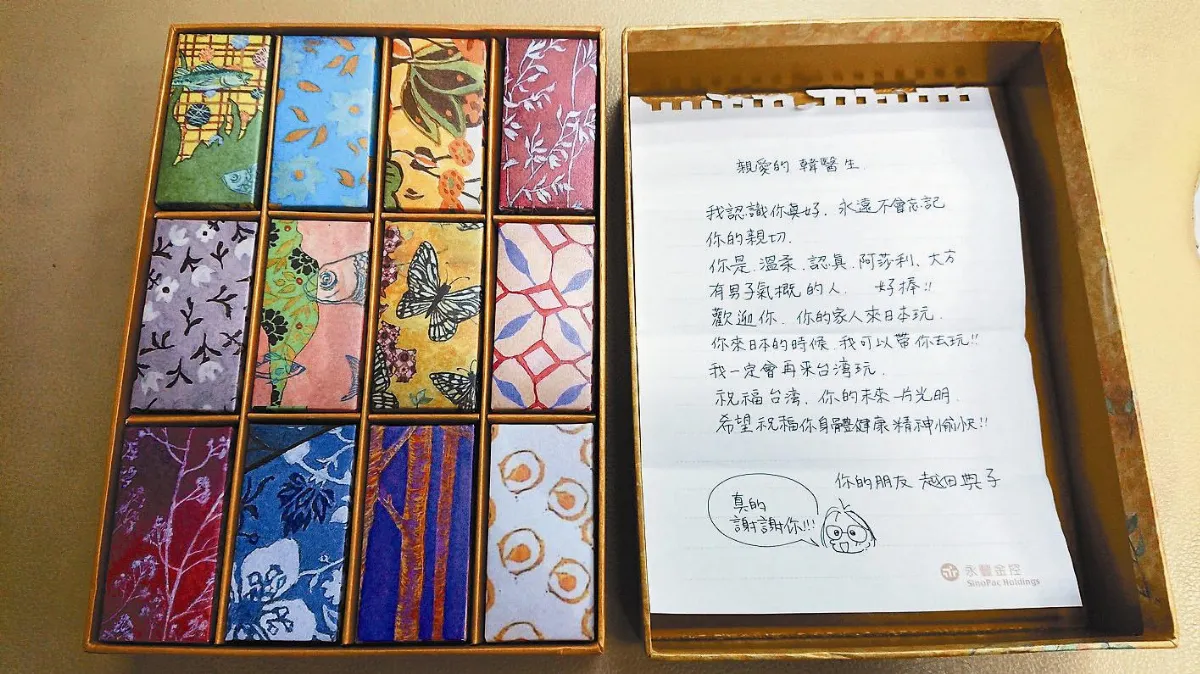 親愛的 韓醫生.
我認識你真好. 永遠不會忘記
你的親切.
你是.溫柔.認真.阿莎利、大方
有男子氣概的人. 好棒!!
歡迎你. 你的家人來日本玩.
你來日本的時候.我可以帶你去玩!!
我一定會再来台湾玩.
祝福台湾. 你的未來一片光明.
希望祝福你身體健康精神愉快!!
你的朋友 越田典子
真的
謝謝你!!!
永豐金控
SinoPac Holdings